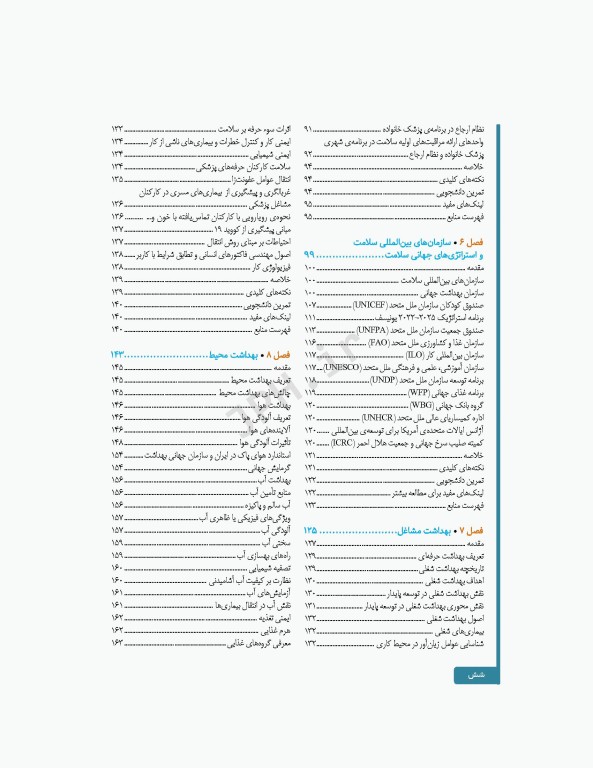 نظام ارجاع در برنامه‌ی پزشک خانواده ........ ۹۱
واحدهای ارائه مراقبت‌های اولیه سلامت در برنامه‌ی شهری
پزشک خانواده و نظام ارجاع ........ ۹۲
خلاصه ........ ۹۴
نکته‌های کلیدی ........ ۹۴
تمرین دانشجویی ........ ۹۴
لینک‌های مفید ........ ۹۵
فهرست منابع ........ ۹۵
فصل ۶ • سازمان‌های بین‌المللی سلامت
و استراتژی‌های جهانی سلامت ........ ۹۹
مقدمه ........ ۱۰۰
سازمان‌های بین‌المللی سلامت ........ ۱۰۰
سازمان بهداشت جهانی ........ ۱۰۰
صندوق کودکان سازمان ملل متحد (UNICEF) ........ ۱۰۷
برنامه استراتژیک ۲۰۲۵-۲۰۲۲ یونیسف ........ ۱۱۱
صندوق جمعیت سازمان ملل متحد (UNFPA) ........ ۱۱۳
سازمان غذا و کشاورزی ملل متحد (FAO) ........ ۱۱۶
سازمان بین‌المللی کار (ILO) ........ ۱۱۷
سازمان آموزشی، علمی و فرهنگی ملل متحد (UNESCO) ........ ۱۱۷
برنامه توسعه سازمان ملل متحد (UNDP) ........ ۱۱۸
برنامه غذای جهانی (WFP) ........ ۱۱۹
گروه بانک جهانی (WBG) ........ ۱۲۰
اداره کمیساریای عالی ملل متحد (UNHCR) ........ ۱۲۰
آژانس ایالات متحده‌ی آمریکا برای توسعه‌ی بین‌المللی ........ ۱۲۰
کمیته صلیب سرخ جهانی و جمعیت هلال احمر (ICRC) ........ ۱۲۰
خلاصه ........ ۱۲۱
نکته‌های کلیدی ........ ۱۲۱
تمرین دانشجویی ........ ۱۲۲
لینک‌های مفید برای مطالعه بیشتر ........ ۱۲۲
فهرست منابع ........ ۱۲۳
فصل ۷ • بهداشت مشاغل ........ ۱۲۵
مقدمه ........ ۱۲۷
تعریف بهداشت حرفه‌ای ........ ۱۲۹
تاریخچه بهداشت شغلی ........ ۱۲۹
اهداف بهداشت شغلی ........ ۱۳۰
نقش بهداشت شغلی در توسعه پایدار ........ ۱۳۰
نقش محوری بهداشت شغلی در توسعه پایدار ........ ۱۳۱
اصول بهداشت شغلی ........ ۱۳۲
بیماری‌های شغلی ........ ۱۳۲
شناسایی عوامل زیان‌آور در محیط کاری ........ ۱۳۲
اثرات سوء حرفه بر سلامت ........ ۱۳۳
ایمنی کار و کنترل خطرات و بیماری‌های ناشی از کار ........ ۱۳۴
ایمنی شیمیایی ........ ۱۳۴
سلامت کارکنان حرفه‌های پزشکی ........ ۱۳۴
انتقال عوامل عفونت‌زا ........ ۱۳۵
غربالگری و پیشگیری از بیماری‌های مسری در کارکنان
مشاغل پزشکی ........ ۱۳۶
نحوه‌ی رویارویی با کارکنان تماس‌یافته با خون و... ........ ۱۳۶
مبانی پیشگیری از کووید ۱۹ ........ ۱۳۷
احتیاطات بر مبنای روش انتقال ........ ۱۳۷
اصول مهندسی فاکتورهای انسانی و تطابق شرایط با کاربر ........ ۱۳۸
فیزیولوژی کار ........ ۱۳۸
خلاصه ........ ۱۳۹
نکته‌های کلیدی ........ ۱۳۹
تمرین دانشجویی ........ ۱۴۰
لینک‌های مفید ........ ۱۴۰
فهرست منابع ........ ۱۴۰
فصل ۸ • بهداشت محیط ........ ۱۴۳
مقدمه ........ ۱۴۵
تعریف بهداشت محیط ........ ۱۴۵
چالش‌های بهداشت محیط ........ ۱۴۵
بهداشت هوا ........ ۱۴۶
تعریف آلودگی هوا ........ ۱۴۶
آلاینده‌های هوا ........ ۱۴۶
تأثیرات آلودگی هوا ........ ۱۴۸
استاندارد هوای پاک در ایران و سازمان جهانی بهداشت ........ ۱۵۴
گرمایش جهانی ........ ۱۵۴
بهداشت آب ........ ۱۵۶
منابع تأمین آب ........ ۱۵۶
آب سالم و پاکیزه ........ ۱۵۶
ویژگی‌های فیزیکی یا ظاهری آب ........ ۱۵۷
آلودگی آب ........ ۱۵۷
سختی آب ........ ۱۵۹
راه‌های بهسازی آب ........ ۱۵۹
تصفیه شیمیایی ........ ۱۶۰
نظارت بر کیفیت آب آشامیدنی ........ ۱۶۰
آزمایش‌های آب ........ ۱۶۱
نقش آب در انتقال بیماری‌ها ........ ۱۶۱
ایمنی تغذیه ........ ۱۶۲
هرم غذایی ........ ۱۶۲
معرفی گروه‌های غذایی ........ ۱۶۲
شش